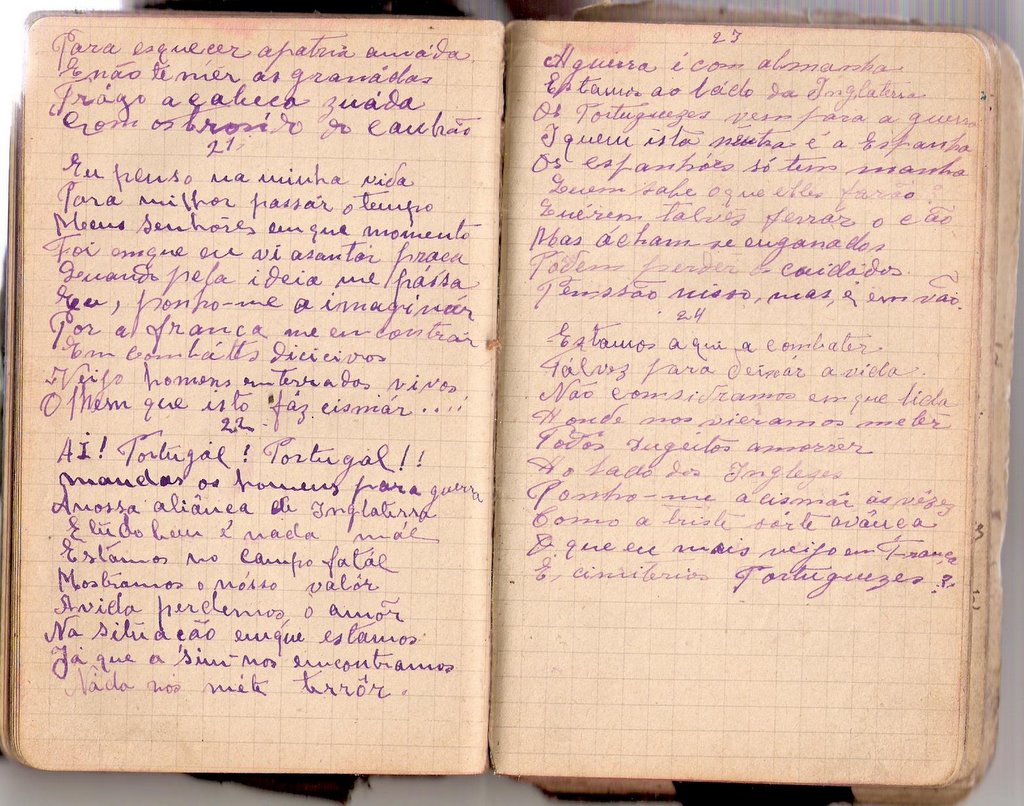 Para esquecer a patria amáda
E não temêr as granádas
Trágo a cabeça zuáda
Com os bronido do Canhão
21
Eu penso na minha vida
Para milhor passár o tempo
Meus senhôres em que momento
Foi em que eu vi asantár praça
Quando pela ideia me pássa
Eu, ponho-me a imaginár
Por a frança me encontrár
Em Combáttes dicicivos
Veijo homens enterrados vivos
O Mem que isto fáz cismár....
22
AI! Portugál! Portugál!!
mandas os homens para guerra
A nossa aliânca de Inglaterra
E tudo bem é nada mál
Estâmos no campo fatál
Mostramos o nósso valôr
A vida perdemos, o amôr
Na situação em que estamos
Já que a sim-nos emcontramos
Náda nós méte terrôr.
23
A guerra é com alemanha
Estamos ao ládo da Inglaterra
Os Portuguezes vem para a guerra
I quem ista neutra é a Espanha
Os espanhóes só tem manha
Quem sabe o que elles farão?
Quérem talvês ferrar o cão
Mas ácham-se enganados
Pódem perder os cuidádos
Penssão nisso, mas, é em vão.
24
Estamos aqui a combater
Tálvez para deixár a vida.
Não comsidramos em que lida
Honde nos vieramos metêr
Todos sugeitos amorrer
Ao lado dos Inglezes
Ponho-me a cismár ás vêzes
Como a triste sórte avânca
O que eu mais veijo em França
E, cimiterios Portuguezes?